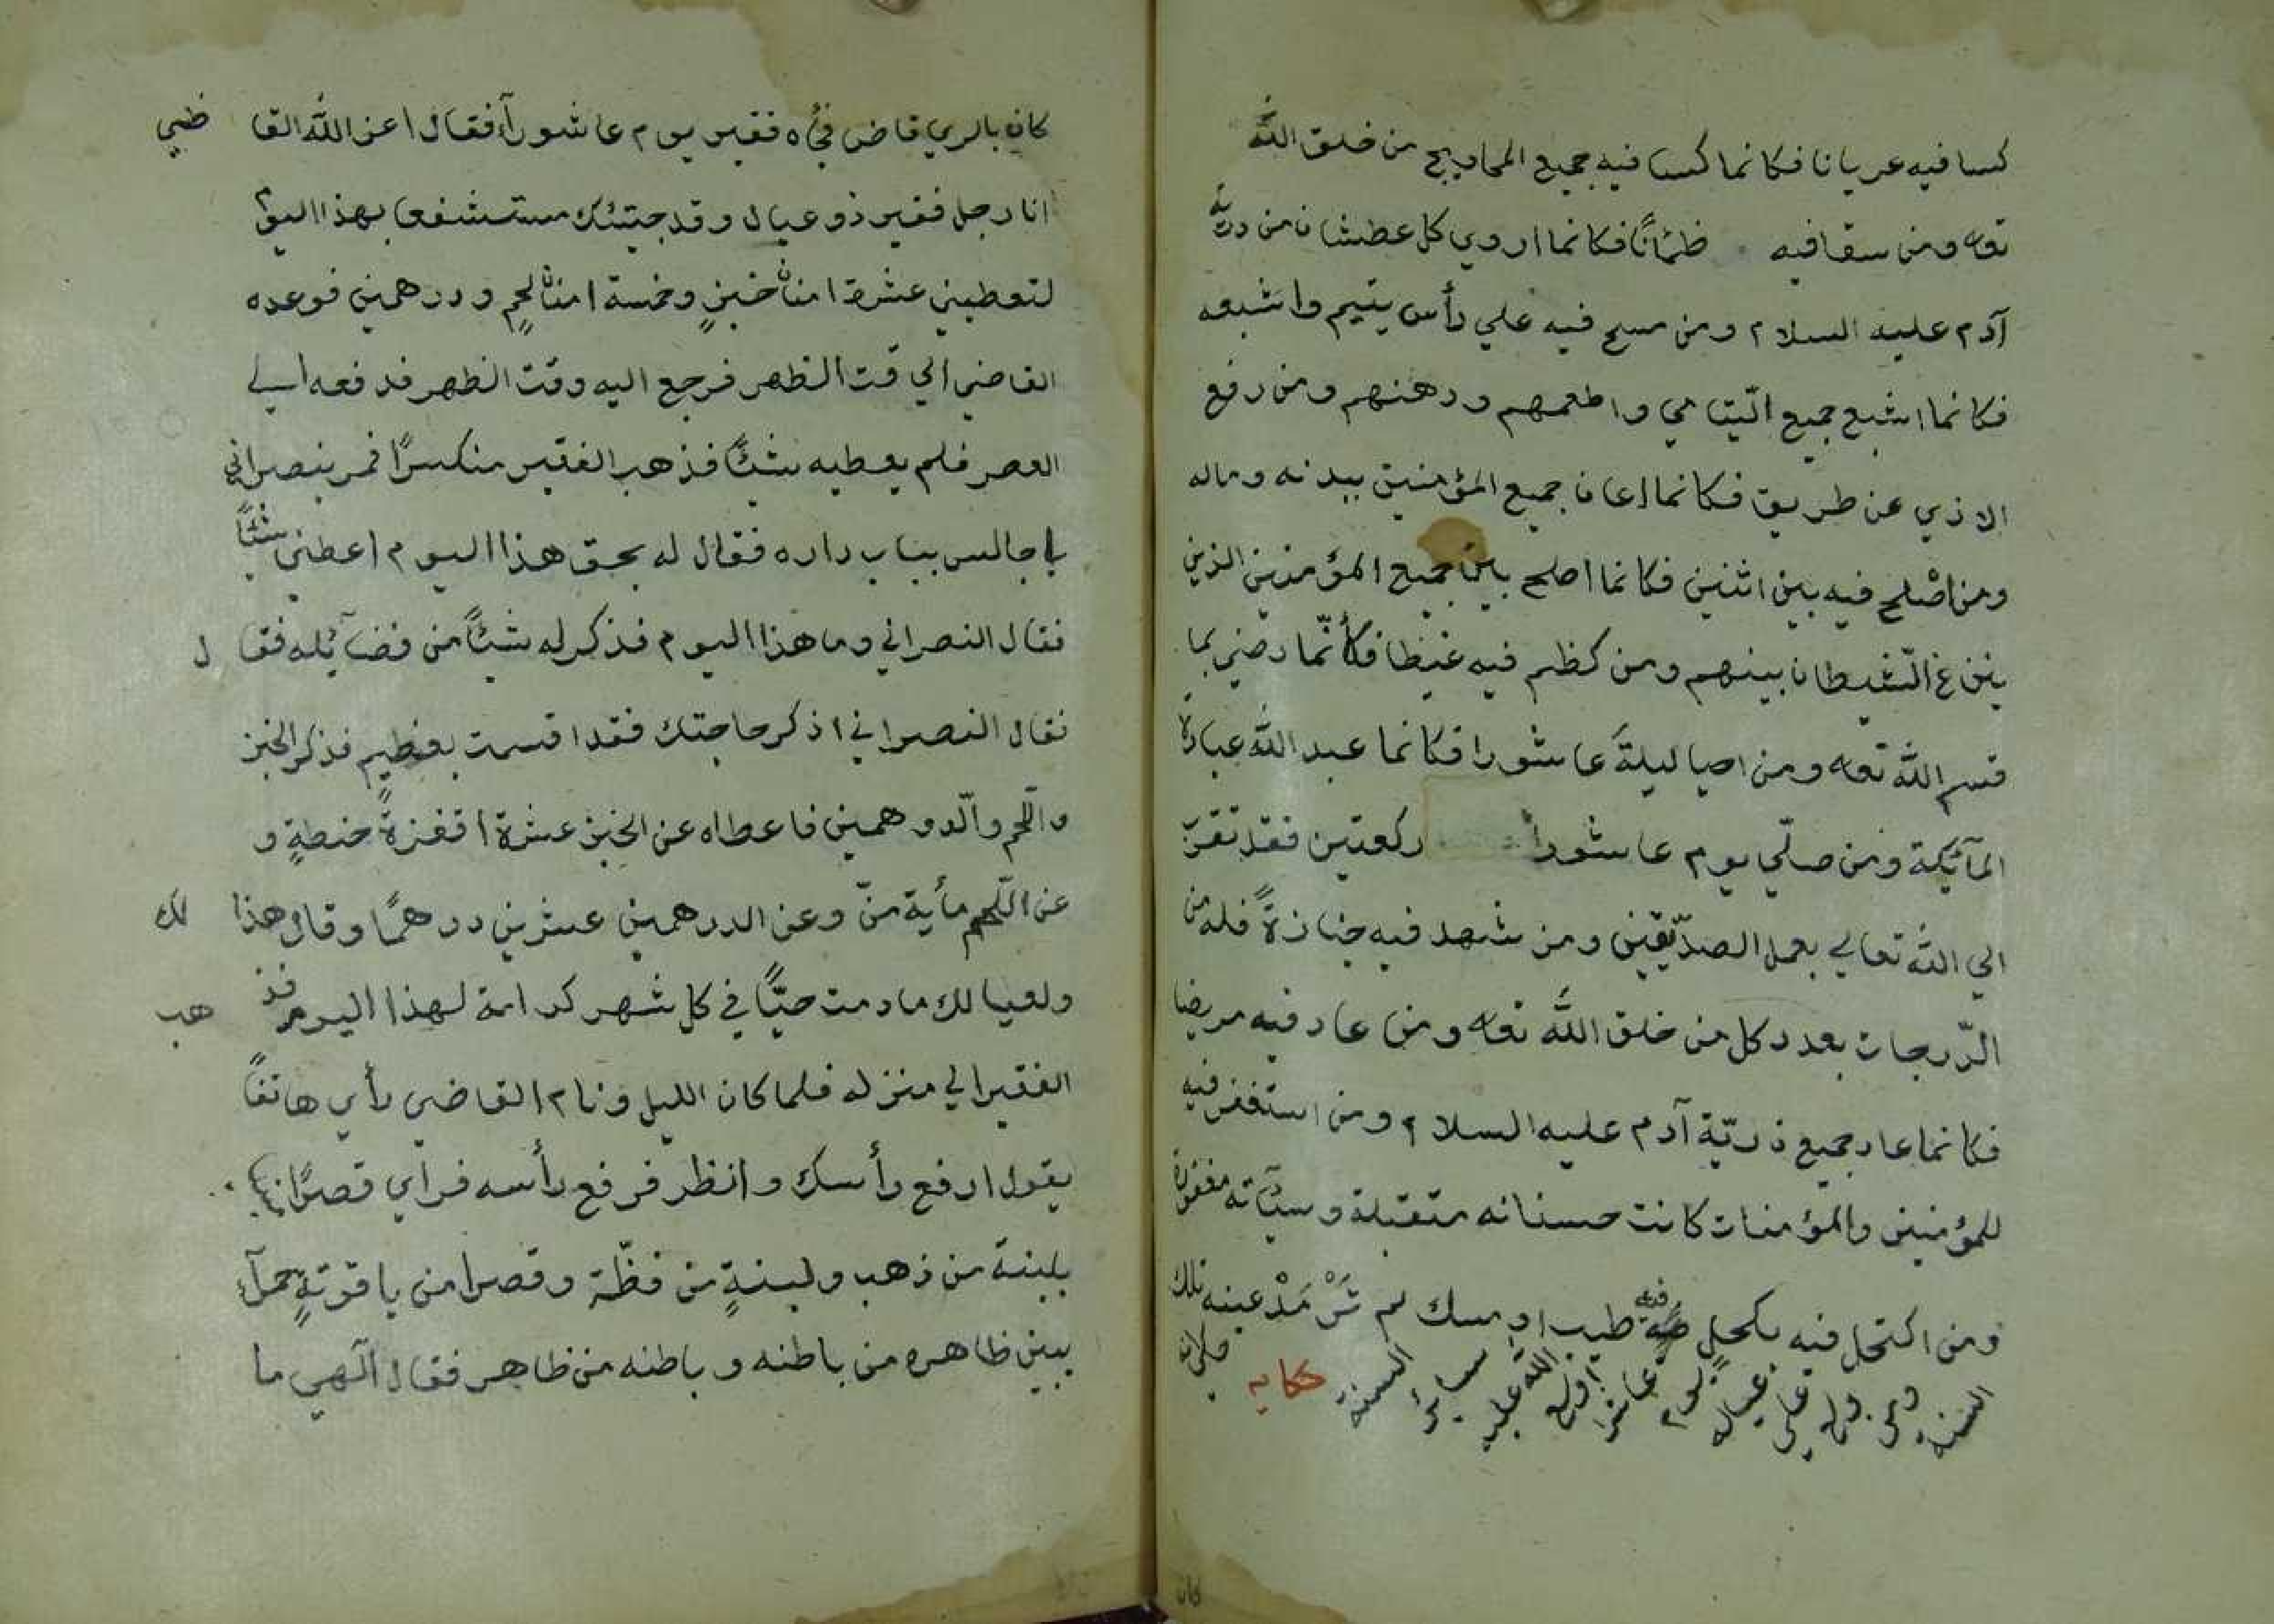 كسا فيه عريانا فكانما كسا فيه جميع المحاويج من خلق الله
تعه ومن سقا فيه ظمئانًا فكانما اروي كل عطشان من ذريّة
آدم عليه السلام ومن مسح فيه علي رأس يتيم واشبعه
فكانما اشبع جميع اليّتامي واطعمهم ودهنهم ومن رفع
الاذي عن طريق فكانما اعان جميع المؤمنين ببدنه وماله
ومن اصْلح فيه بين اثنين فكانما اصلح بين جميع المؤمنين الذين
ينزغ الشّيطان بينهم ومن كظم فيه غيظا فكأنّما رضي بما
قسم الله تعه ومن احيا ليلة عاشورا فكانما عبد الله عبادة
الملآئيكة ومن صلّي يوم عاشورا ركعتين فقد تقرّب
الي الله تعالي بعمل الصدّيقين ومن شهد فيه جنازةً فله من
الدّرجات بعدد كل من خلق الله تعه ومن عاد فيه مريضا
فكانما عاد جميع ذريّة آدم عليه السلام ومن استغفر فيه
للمؤمنين والمؤمنات كانت حسناته متقبلة وسيّآته مغفورة
ومن اكتحل فيه بكحل فيه طيب او مسك لم تَرْمَدْ عينه تلك
السنة ومن وسع علي عياله يوم عاشورا وسع الله عليه سائر السنة حكايه
كان
كان بالري قاض فجٔاه فقير يوم عاشورآء فقال اعز الله القا ضي
انا رجل فقير ذو عيال وقد جيتئك مستشفعا بهذا اليوم
لتعطيني عشرة امناء خبزٍ وخمسة امناء لحمٍ ودرهمين فوعده
القاضي الي قت الظهر فرجع اليه وقت الظهر فدفعه الي
العصر فلم يعطيه شئًا فذهب الفقير منكسرًا فمر بنصراني
يا جالس بباب داره فقال له بحق هذا اليوم اعطني شئًا
فقال النصراني وما هذا اليوم فذكر له شيئًا من فضآئيله فقا ل
فقال النصراني اذكر حاجتك فقد اقسمت بعظيمٍ فذكر الخبز
واللّحم والّدرهمين فاعطاه عن الخبز عشرة اقفزةً حنطةٍ و
عن اللّحم مأية منّ وعن الدرهمين عشرين درهمًا وقال هذا لك
ولعيالك ما دمت حيًّا في كل شهر كرامة لهذا اليوم فذ هب
الفقير الي منزله فلما كان الليل ونام القاضي رأي هاتفًا
يقول ارفع رأسك وانظر فرفع رأسه فراي قصرًا
بلبنة من ذهب ولبنةٍ من فظّة وقصرا من ياقوتةٍ حمرآء
يبين ظاهره من باطنه وباطنه من ظاهر فقال الّهي ما